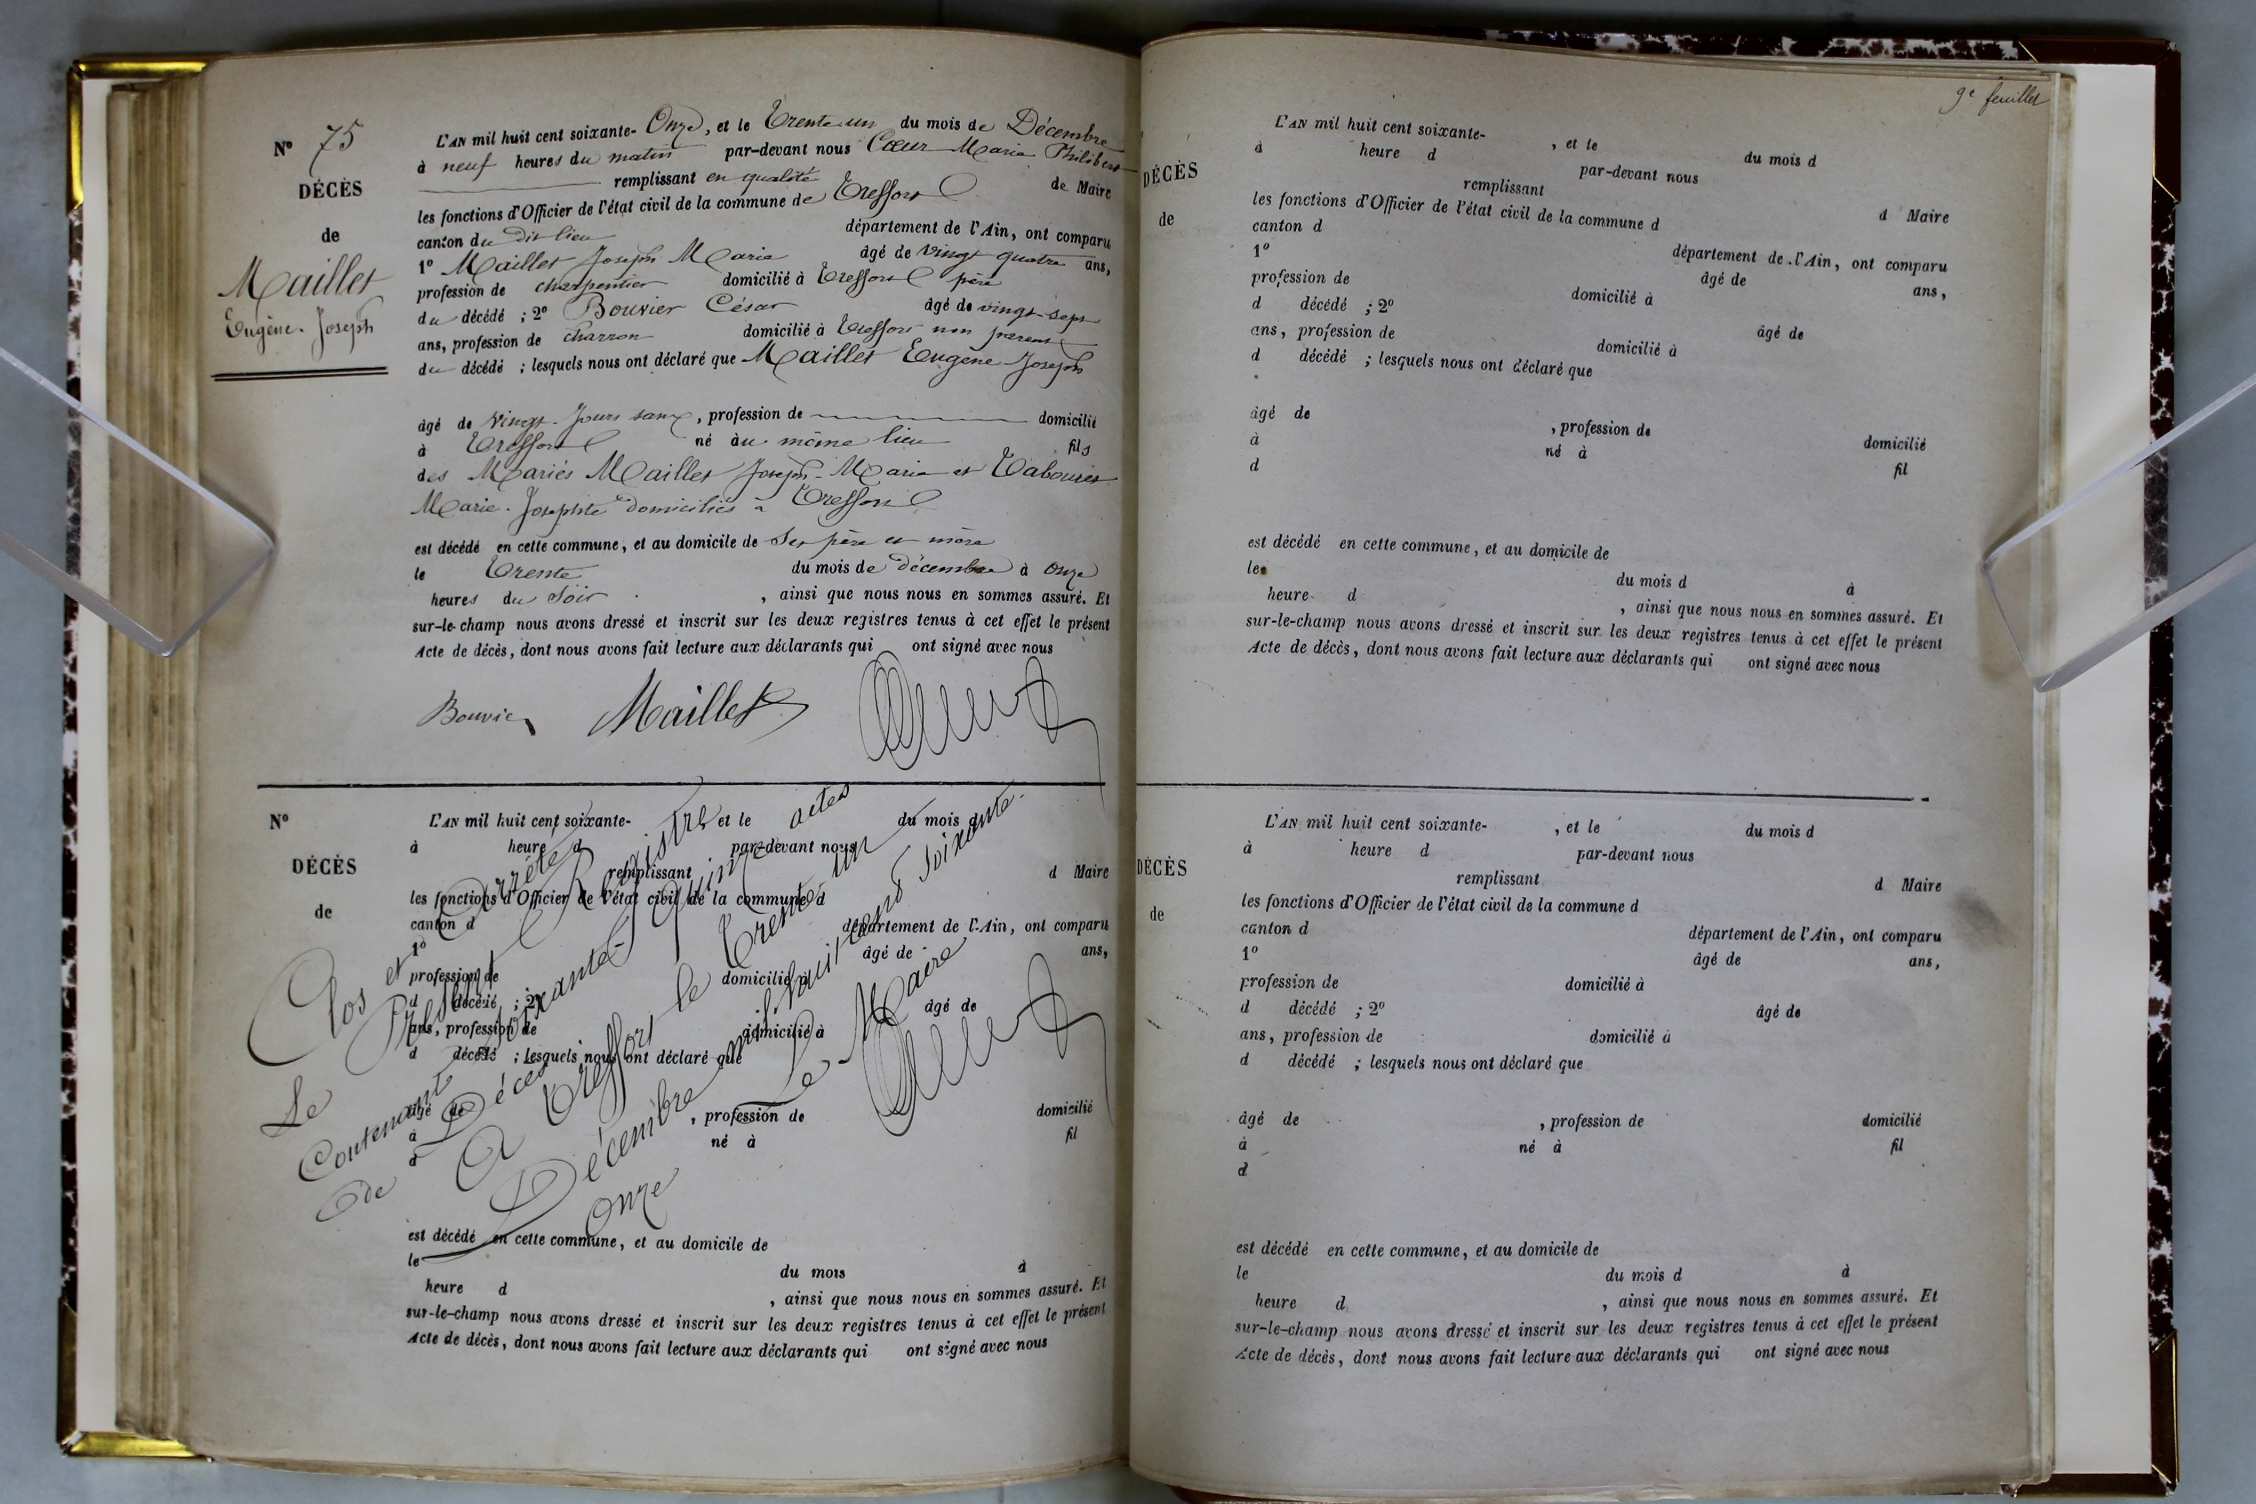 N° 75
DÉCÈS
de
Maillet
Eugène-Joseph
L'AN mil huit cent soixante-Onze, et le Trente un du mois de Décembre
à neuf heures du matin par-devant nous Cœur Marie Philibert
remplissant en qualité de Maire
les fonctions d'Officier de l'état civil de la commune de Treffort
canton du dit lieu département de l'Ain, ont comparu
1° Maillet Joseph Marie âgé de vingt quatre ans,
profession de charpentier domicilié à Treffort père
du décédé ; 2° Bouvier César âgé de vingt-sept
ans, profession de charron domicilié à Treffort non parent
du décédé ; lesquels nous ont déclaré que Maillet Eugène Joseph
âgé de vingt-Jours sans, profession de domicilié
à Treffort né au même lieu fils
des Mariés Maillet Joseph-Marie et Tabouret
Marie-Josephte domiciliés à Treffort
est décédé en cette commune, et au domicile de Ses père et mère
le Trente du mois de décembre à Onze
heures du Soir, ainsi que nous nous en sommes assuré. Et
sur-le-champ nous avons dressé et inscrit sur les deux registres tenus à cet effet le présent
Acte de décès, dont nous avons fait lecture aux déclarants qui ont signé avec nous
Bouvier Maillet
N°
DÉCÈS
de
L'AN mil huit cent soixante- et le du mois d
à heure d par-devant nous
remplissant d Maire
les fonctions d'Officier de l'état civil de la commune d
canton d département de l'Ain, ont comparu
1° âgé de ans,
profession de domicilié à
d décédé ; 2° âgé de
ans, profession de domicilié à
d décédé ; lesquels nous ont déclaré que
âgé de , profession de domicilié
à né à fil
d
est décédé en cette commune, et au domicile de
le du mois à
heure d , ainsi que nous nous en sommes assuré. Et
sur-le-champ nous avons dressé et inscrit sur les deux registres tenus à cet effet le présent
Acte de décès, dont nous avons fait lecture aux déclarants qui ont signé avec nous
Clos et Arrêté
Le Présent Registre
Contenant soixante-quinze actes
de Décès
A Treffort le Trente un
Décembre mil huit cent soixante-
Onze
Le Maire
9e feuillet
DÉCÈS
de
L'AN mil huit cent soixante- , et le du mois d
à heure d par-devant nous
remplissant d Maire
les fonctions d'Officier de l'état civil de la commune d
canton d département de l'Ain, ont comparu
1° âgé de ans,
profession de domicilié à
d décédé ; 2° âgé de
ans, profession de domicilié à
d décédé ; lesquels nous ont déclaré que
âgé de , profession de domicilié
à né à fil
d
est décédé en cette commune, et au domicile de
le du mois d à
heure d , ainsi que nous nous en sommes assuré. Et
sur-le-champ nous avons dressé et inscrit sur les deux registres tenus à cet effet le présent
Acte de décès, dont nous avons fait lecture aux déclarants qui ont signé avec nous
DÉCÈS
de
L'AN mil huit cent soixante- , et le du mois d
à heure d par-devant nous
remplissant d Maire
les fonctions d'Officier de l'état civil de la commune d
canton d département de l'Ain, ont comparu
1° âgé de ans,
profession de domicilié à
d décédé ; 2° âgé de
ans, profession de domicilié à
d décédé ; lesquels nous ont déclaré que
âgé de , profession de domicilié
à né à fil
d
est décédé en cette commune, et au domicile de
le du mois d à
heure d , ainsi que nous nous en sommes assuré. Et
sur-le-champ nous avons dressé et inscrit sur les deux registres tenus à cet effet le présent
Acte de décès, dont nous avons fait lecture aux déclarants qui ont signé avec nous